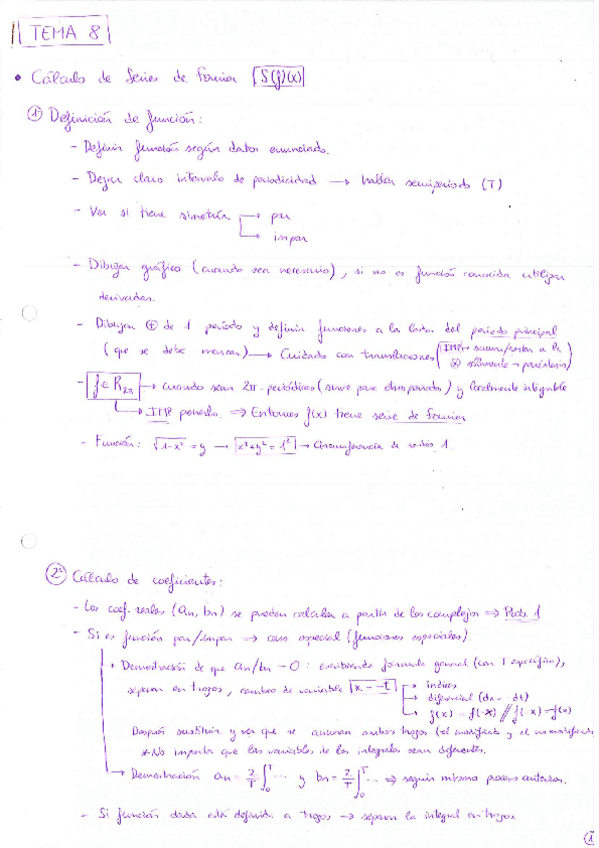 TEMA 8
• Cálculo de Series de Fourier S(f)(x)
① Definición de función:
- Definir función según datos enunciado.
- Dejar claro intervalo de periodicidad → hallar semiperiodo (T)
- Ver si tiene simetría → par
→ impar
- Dibujar gráfico (cuando sea necesario), si no es función conocida utilizar
derivadas.
- Dibujar ⊕ de 1 periodo y definir funciones a los lados del periodo principal
(que se debe marcar) → Cuidado con traslaciones (IMP → sumar/restar a la
ⓧ solamente → paréntesis)
- f ∈ R2π → cuando sean 2π-periódicas (sirve para otros periodos) y localmente integrable
→ IMP ponerlo ⇒ Entonces f(x) tiene serie de Fourier
- Función: √1-x² = y → x²+y² = 1² → Circunferencia de radio 1
② Cálculo de coeficientes:
- Los coef. reales (an, bn) se pueden calcular a partir de los complejos ⇒ Prob. 1
- Si es función par/impar ⇒ caso especial (funciones especiales)
• Demostración de que an/bn = 0: escribiendo fórmula general (con T específica),
separar en trozos, cambio de variable x = -t → índices
→ diferencial (dx = -dt)
→ f(x) = f(-x) // f(-x) = -f(x)
Después sustituir y ver que se anulan ambos trozos (el modificado y el no modificado)
*No importa que las variables de las integrales sean diferentes.
→ Demostración an = 2/T ∫₀ᵀ ... y bn = 2/T ∫₀ᵀ ... ⇒ seguir mismo proceso anterior.
- Si función dada está definida a trozos → separar la integral en trozos
1